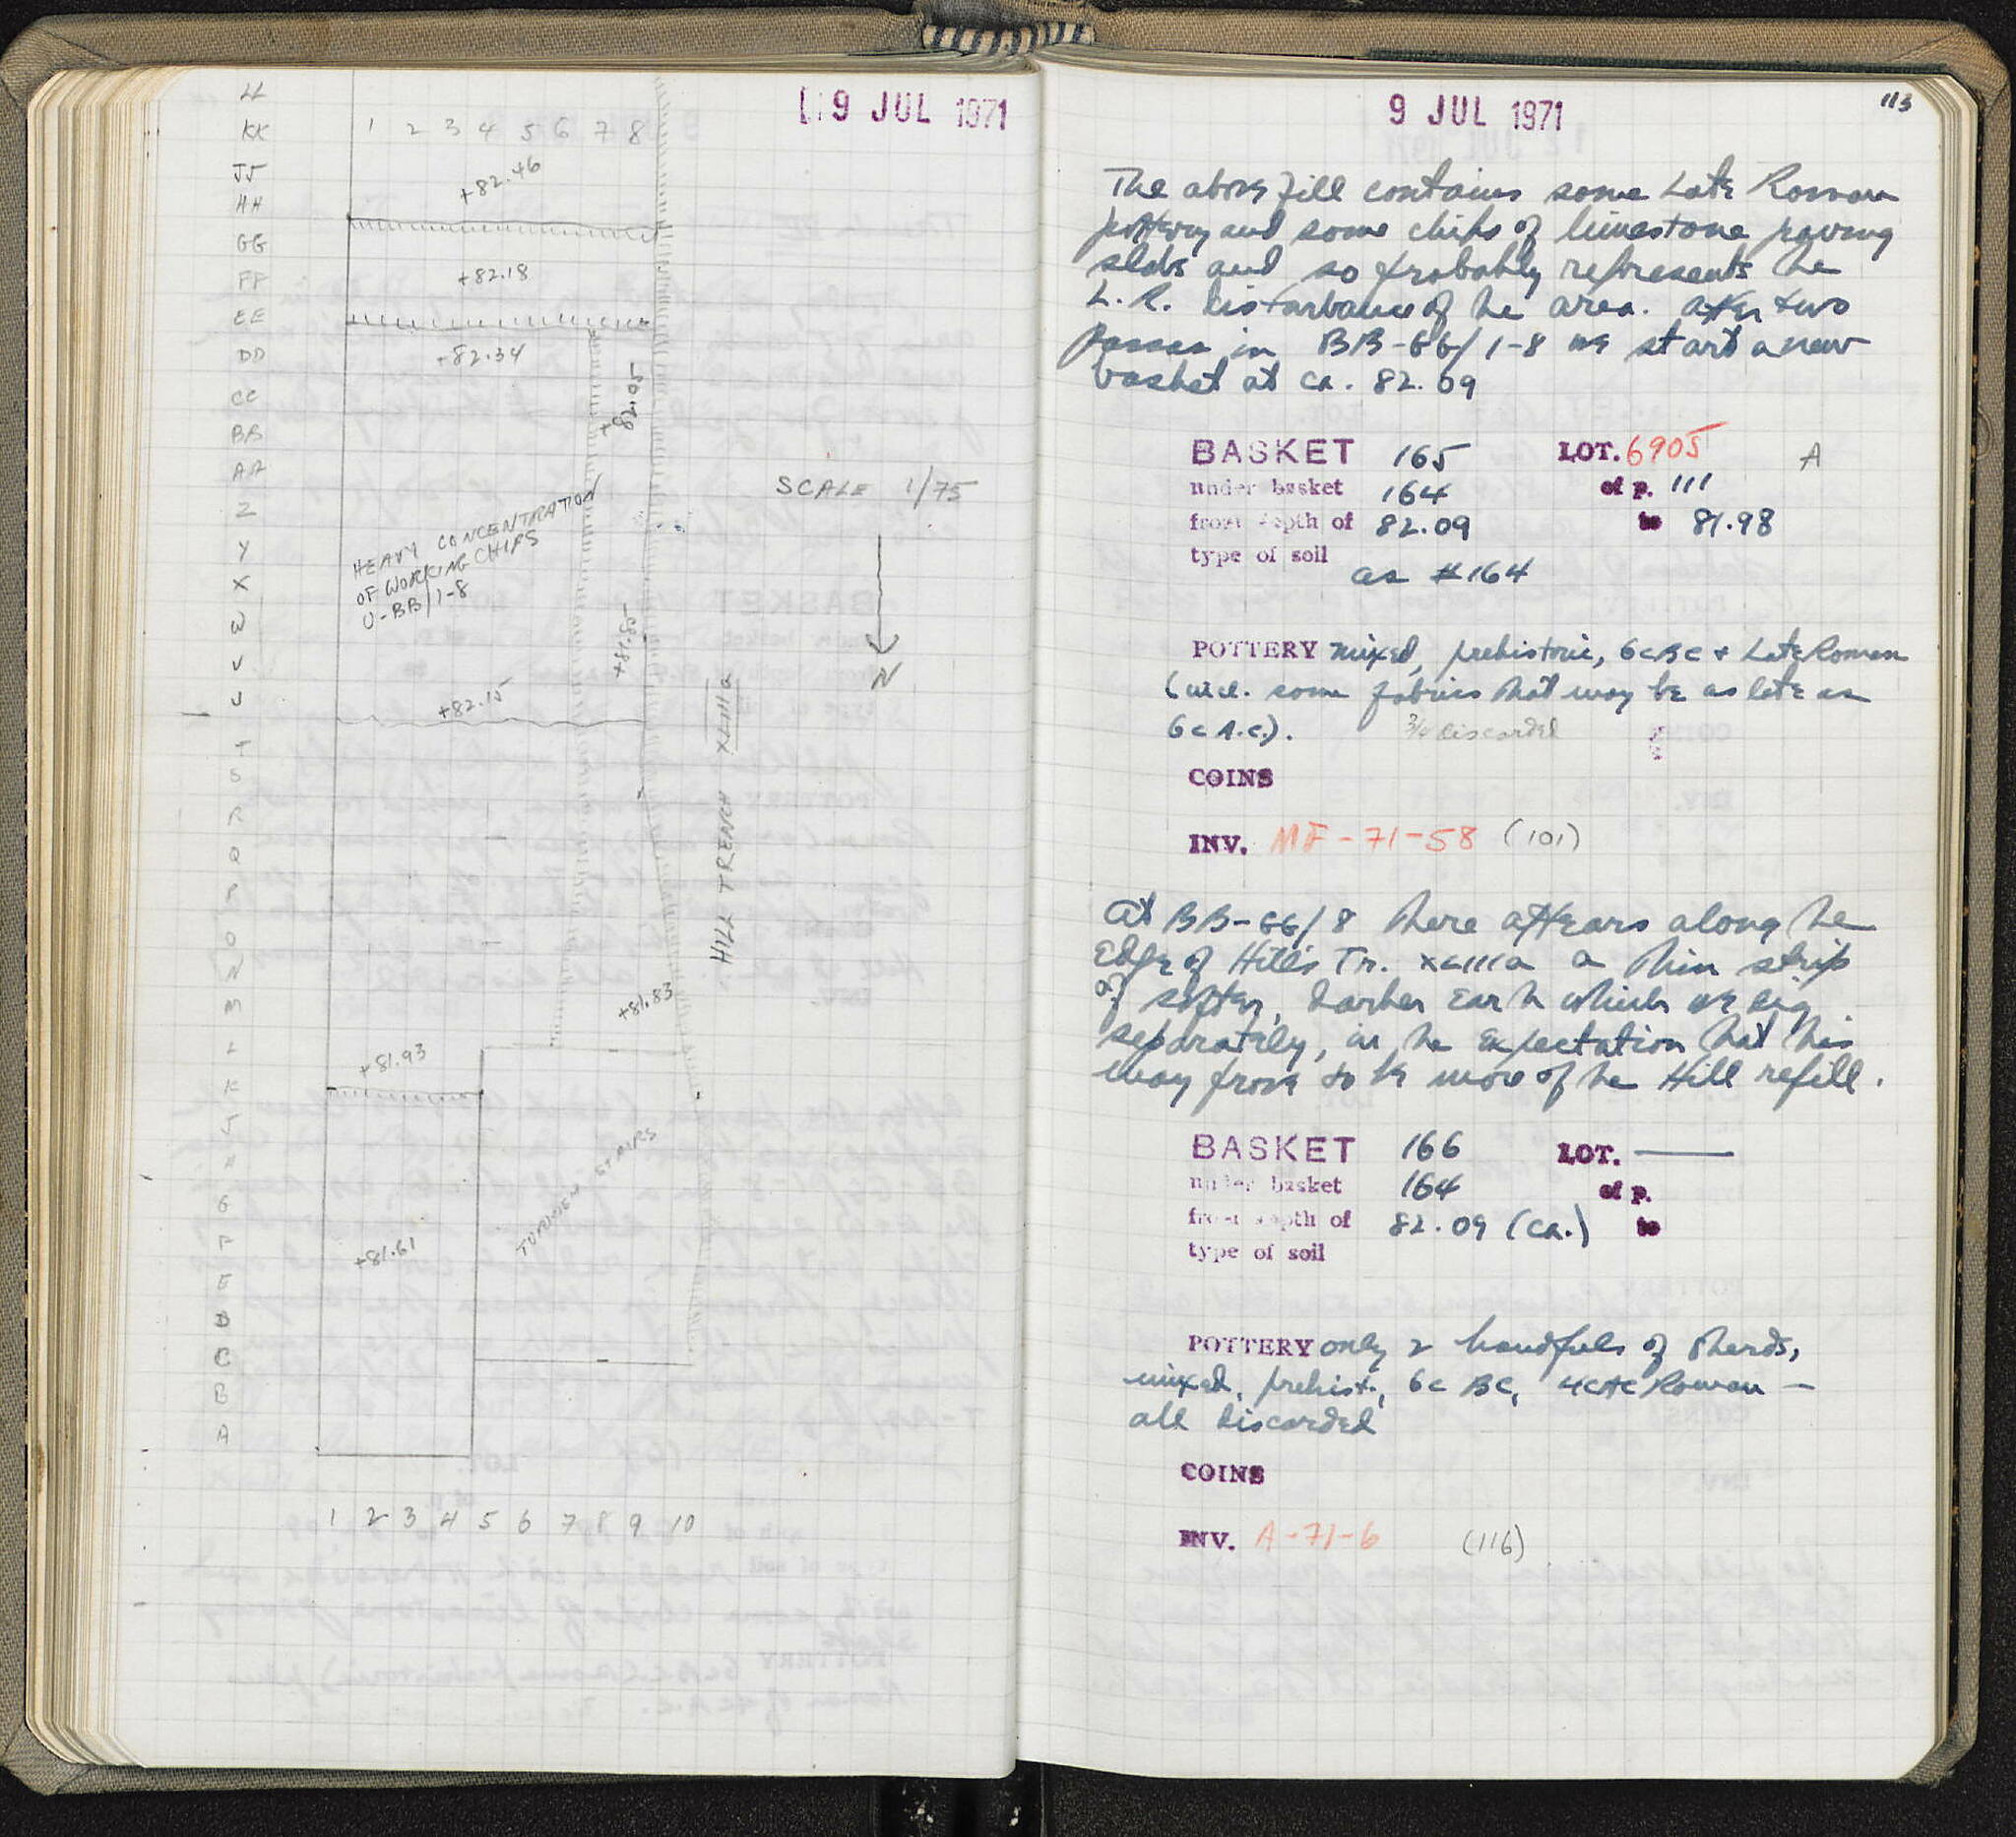 9 JUL 1971
LL
KK
JJ
HH
GG
FF
EE
DD
CC
BB
AA
Z
Y
X
W
V
U
T
S
R
Q
P
O
N
M
L
K
J
H
G
F
E
D
C
B
A
1 2 3 4 5 6 7 8
+82.46
+82.18
+82.34
+82.05
HEAVY CONCENTRATION
OF WORKING CHIPS
U-BB/1-8
+81.85
+82.15
SCALE 1/75
N
HILL TRENCH XLIIIa
+81.83
+81.93
TURNED STAIRS
+81.61
1 2 3 4 5 6 7 8 9 10
9 JUL 1971
113
The above fill contains some Late Roman
pottery and some chips of limestone paving
slabs and so probably represents the
L.R. disturbance of the area. After two
passes in BB-GG/1-8 we start a new
basket at ca. 82.09
BASKET 165 LOT. 6905 A
under basket 164 of p. 111
from depth of 82.09 to 81.98
type of soil
as #164
POTTERY mixed, prehistoric, 6c BC + Late Roman
(incl. some fabrics that may be as late as
6c A.C.). 3/4 discarded
COINS
INV. MF-71-58 (101)
At BB-GG/8 there appears along the
edge of Hill's Tr. XLIIIa a thin strip
of softer, darker earth which we dig
separately, in the expectation that this
may prove to be more of the Hill refill.
BASKET 166 LOT. —
under basket 164 of p.
from depth of 82.09 (ca.) to
type of soil
POTTERY only 2 handfuls of sherds,
mixed, prehist., 6c BC, 4c AC Roman —
all discarded
COINS
INV. A-71-6 (116)